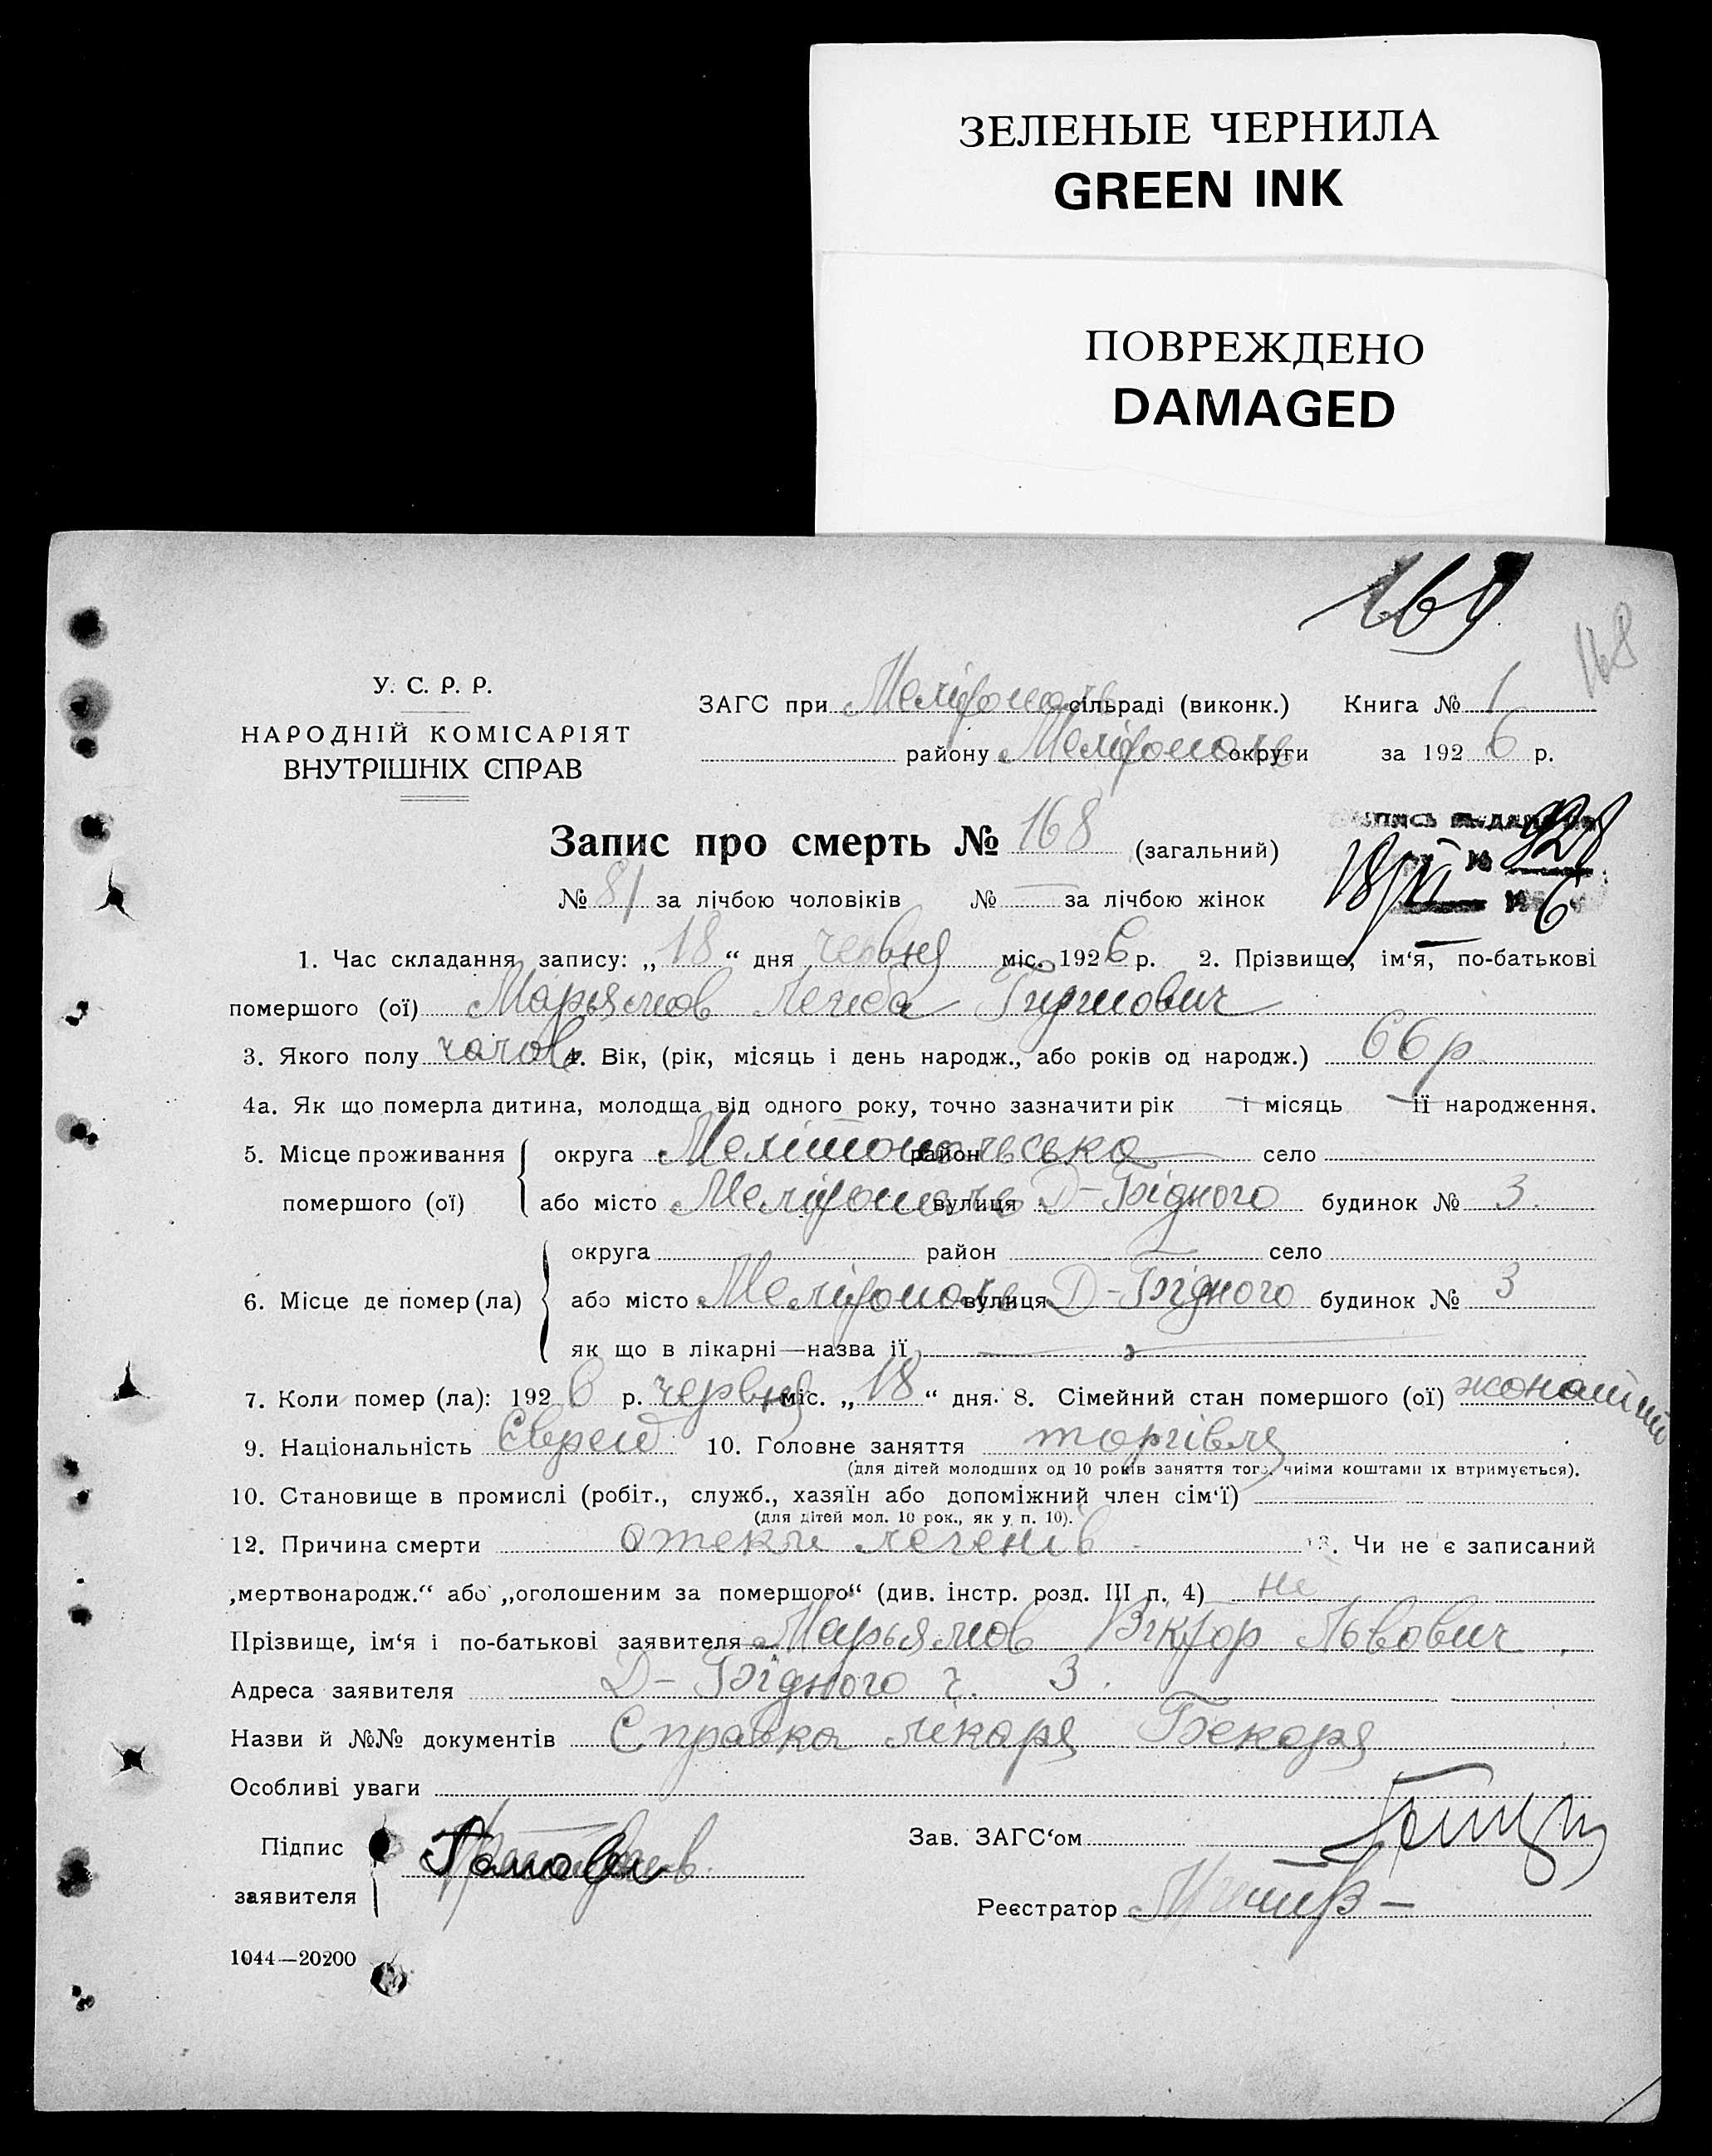 ЗЕЛЕНЫЕ ЧЕРНИЛА
GREEN INK
ПОВРЕЖДЕНО
DAMAGED
169
168
У. С. Р. Р.
НАРОДНІЙ КОМІСАРІЯТ
ВНУТРІШНІХ СПРАВ
ЗАГС при Мелітополь сільраді (виконк.) Книга № 1
району Мелітополь округи за 1926 р.
Запис про смерть № 168 (загальний)
№ 81 за лічбою чоловіків № — за лічбою жінок
1. Час складання запису: „18“ дня червня міс. 1926 р. 2. Прізвище, ім‘я, по-батькові
помершого (ої) Марьямов Лейба Гиршович
3. Якого полу чолов 4. Вік, (рік, місяць і день народж., або років од народж.) 66 р.
4а. Як що померла дитина, молодща від одного року, точно зазначити рік — і місяць — її народження.
5. Місце проживання помершого (ої) округа Мелітопольська район село
або місто Мелітополь вулиця Д-Бідного будинок № 3.
6. Місце де помер (ла) округа район — село
або місто Мелітополь вулиця Д-Бідного будинок № 3
як що в лікарні—назва її
7. Коли помер (ла): 1926 р. червня міс. „18“ дня. 8. Сімейний стан помершого (ої) жонатий
9. Національність Єврей 10. Головне заняття торгівля
(для дітей молодших од 10 років заняття того, чиїми коштами їх втримується).
10. Становище в промислі (робіт., служб., хазяїн або допоміжний член сім‘ї)
(для дітей мол. 10 рок., як у п. 10).
12. Причина смерти отеки легенів 13. Чи не є записаний
„мертвонародж.“ або „оголошеним за помершого“ (див. інстр. розд. III п. 4) не
Прізвище, ім‘я і по-батькові заявителя Марьямов Віктор Львович
Адреса заявителя Д-Бідного ч. 3.
Назви й №№ документів Справка лікаря Бекаря
Особливі уваги
Підпис заявителя
Зав. ЗАГС‘ом
Реєстратор
1044—20200